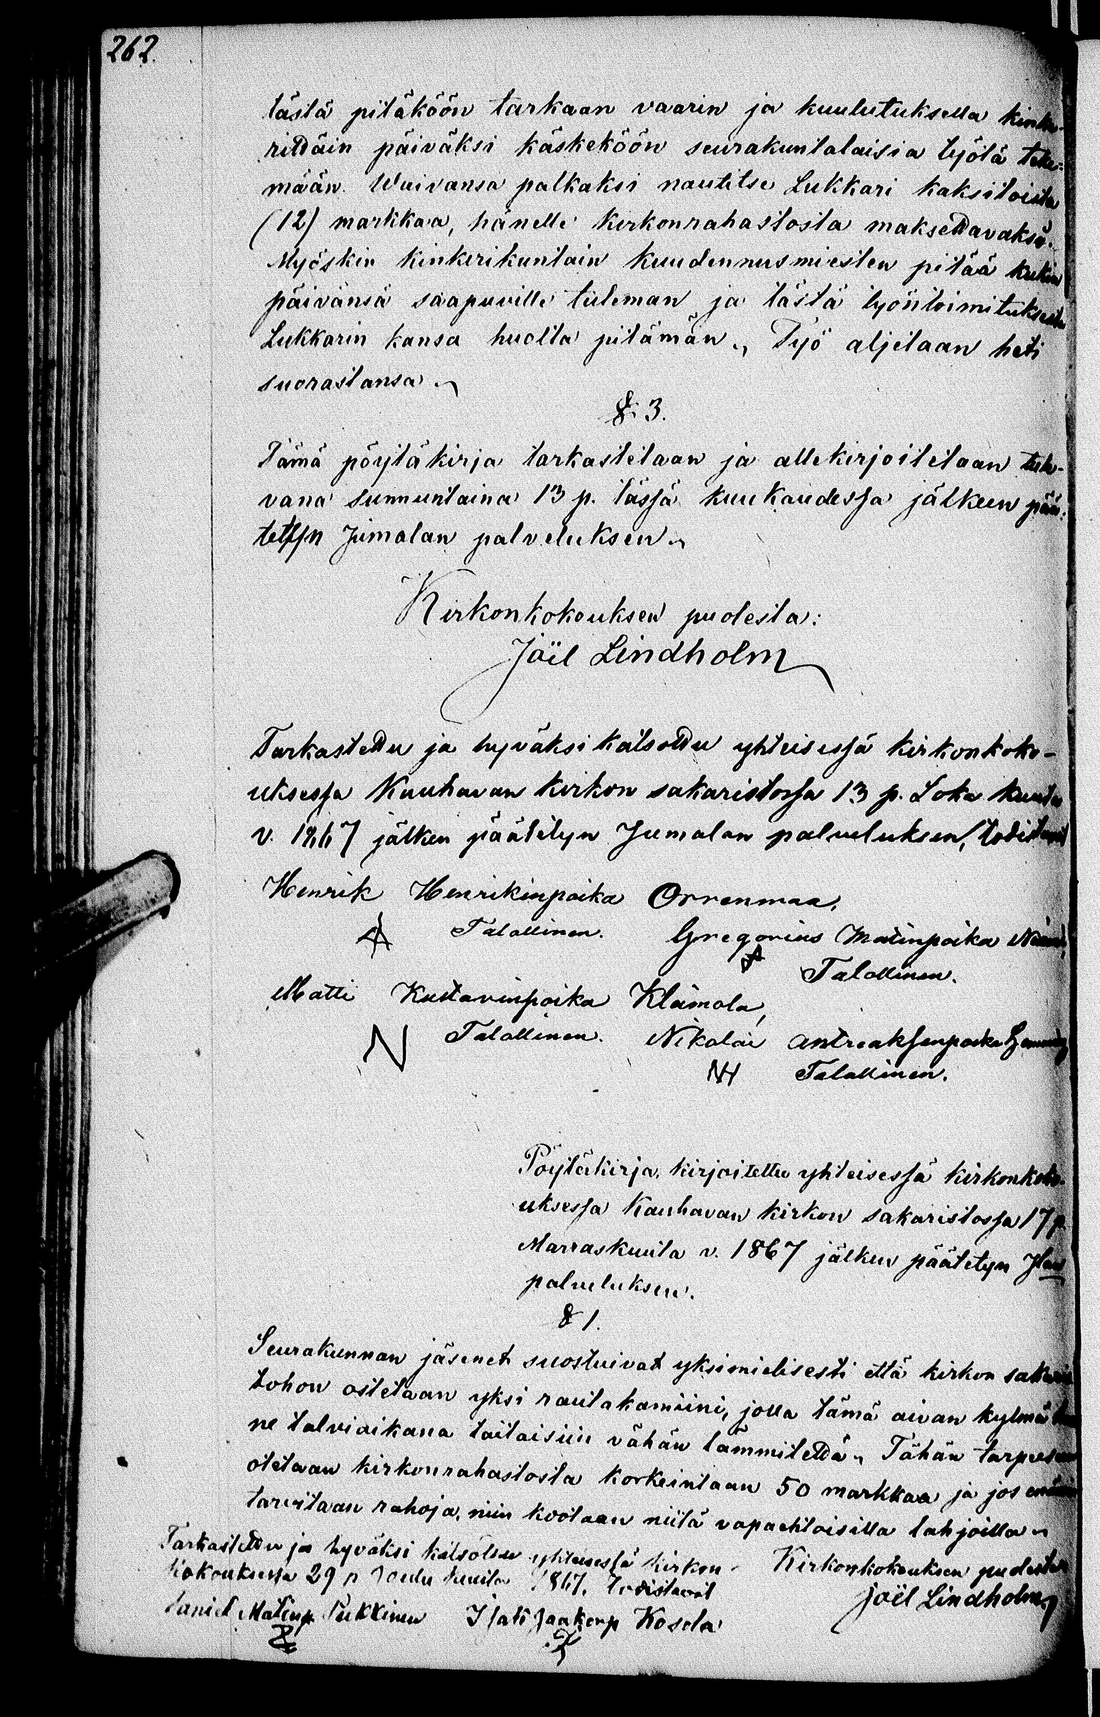 262.
tästä pitäköön tarkaan vaarin ja kuulutuksella kinke-
riddäin päiväksi käskeköön seurakuntalaisia työtä teke-
mään. Waivansa palkaksi nautitse Lukkari kaksitoista
(12) markkaa, hänelle kirkonrahastosta maksettavaksi.
Myöskin kinkerikuntain kuudennusmiesten pitää kukin
päivänsä saapuville tuleman ja tästä työntoimituksesta
Lukkarin kansa huolta pitämän. Työ aljetaan heti
suorastansa.
§ 3.
Tämä pöytäkirja tarkastetaan ja allekirjoitetaan tule-
vana sunnuntaina 13 p. tässä kuukaudessa jälkeen pää-
tetyn Jumalan palveluksen.
Kirkonkokouksen puolesta:
Joël Lindholm
Tarkastettu ja hyväksi katsottu yhteisessä kirkonkoko-
uksessa Kauhavan kirkon sakaristossa 13 p. Loka kuuta
v. 1867 jälken päätetyn Jumalan palveluksen, todistavat
Henrik Henrikinpoika Orrenmaa,
Talollinen. Gregorius Matinpoika
Talollinen.
Matti Kustavinpoika Klamola,
Talollinen. Nikolai Antreaksenpoika
NH Talollinen.
Pöytäkirja, kirjoitettu yhteisessä kirkonkoko-
uksessa Kauhavan kirkon sakaristossa 17 p.
Marraskuuta v. 1867 jälken päätetyn Jlan
palveluksen.
§ 1.
Seurakunnan jäsenet suostuivat yksimielisesti että kirkon sakaris
tohon ostetaan yksi rautakamiini, jolla tämä aivan kylmä
ne talviaikana taitaisiin vähän lämmitettä. Tähän tarpeeseen
otetaan kirkonrahastosta korkeintaan 50 markkaa ja jos enämm
tarvitaan rahoja, niin kootaan niitä vapaehtoisilla lahjoilla.
Tarkastettu ja hyväksi katsottu yhteisessä kirkon- Kirkonkokouksen puolesta
kokouksessa 29 p Joulu kuuta 1867, todistavat Joël Lindholm
Daniel Matinp. Pukkinen Isak Jaakonp Kosola